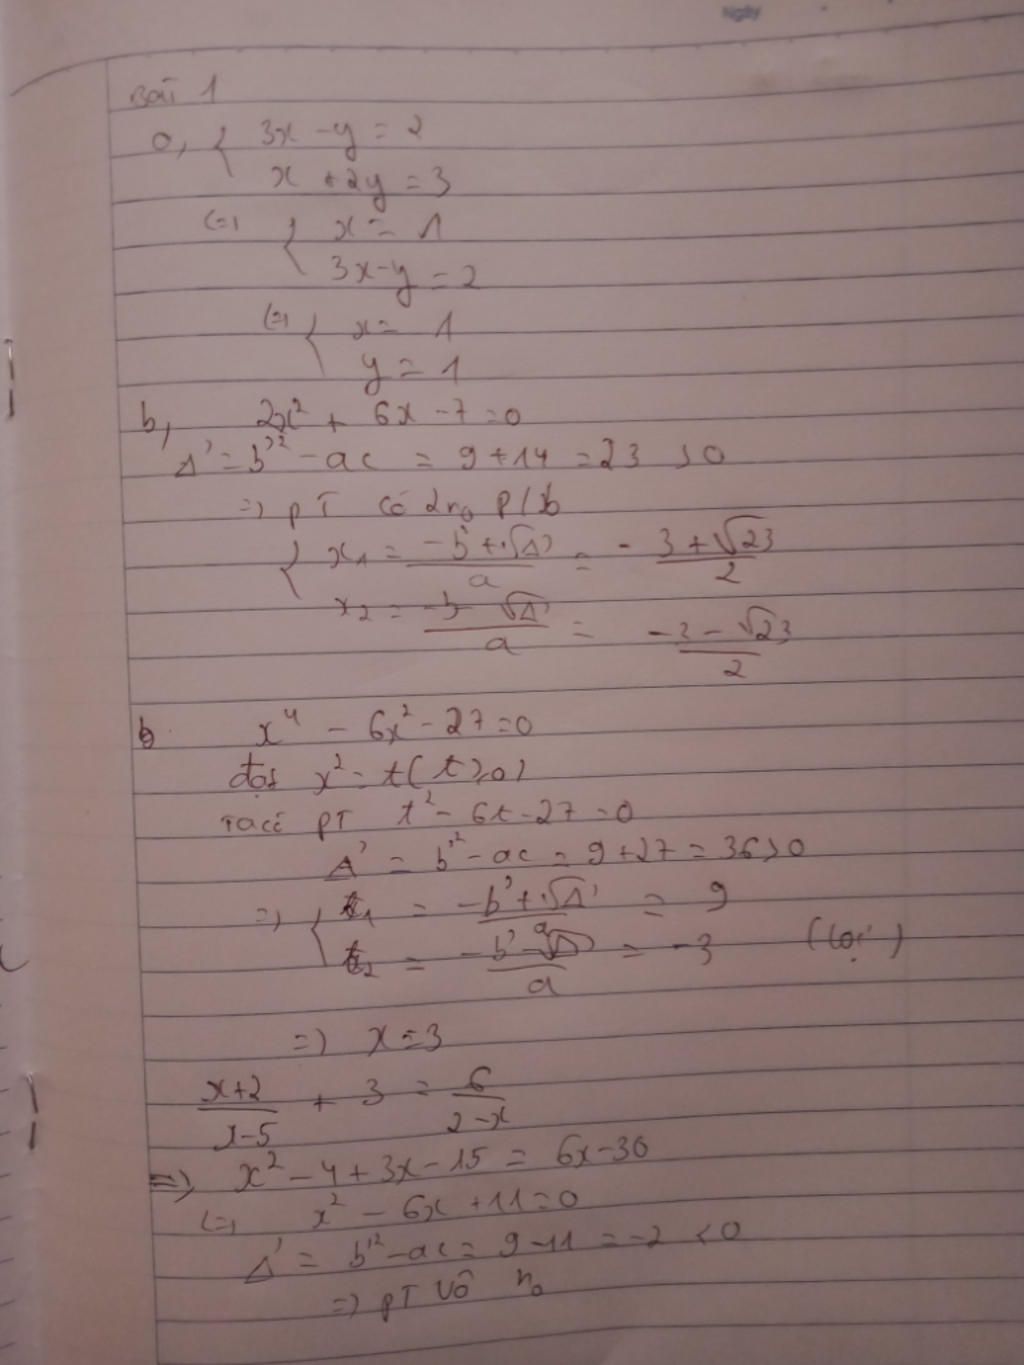 Ngày
Bài 1
a, { 3x - y = 2
x + 2y = 3
(=) { x = 1
3x - y = 2
(=) { x = 1
y = 1
b, 2x² + 6x - 7 = 0
Δ' = b'² - ac = 9 + 14 = 23 > 0
=> pT có 2n₀ p/b
{ x₁ = (-b' + √Δ')/a = (-3 + √23)/2
x₂ = (-b - √Δ')/a = (-3 - √23)/2
b x⁴ - 6x² - 27 = 0
đặt x² = t (t ≥ 0)
Ta có pT t² - 6t - 27 = 0
Δ' = b'² - ac = 9 + 27 = 36 > 0
=> { t₁ = (-b' + √Δ')/a = 9
t₂ = (-b' - √Δ)/a = -3 (loại)
=> x = 3
(x+2)/(x-5) + 3 = 6/(2-x)
=> x² - 4 + 3x - 15 = 6x - 30
(=) x² - 6x + 11 = 0
Δ' = b'² - ac = 9 - 11 = -2 < 0
=> pT vô n₀